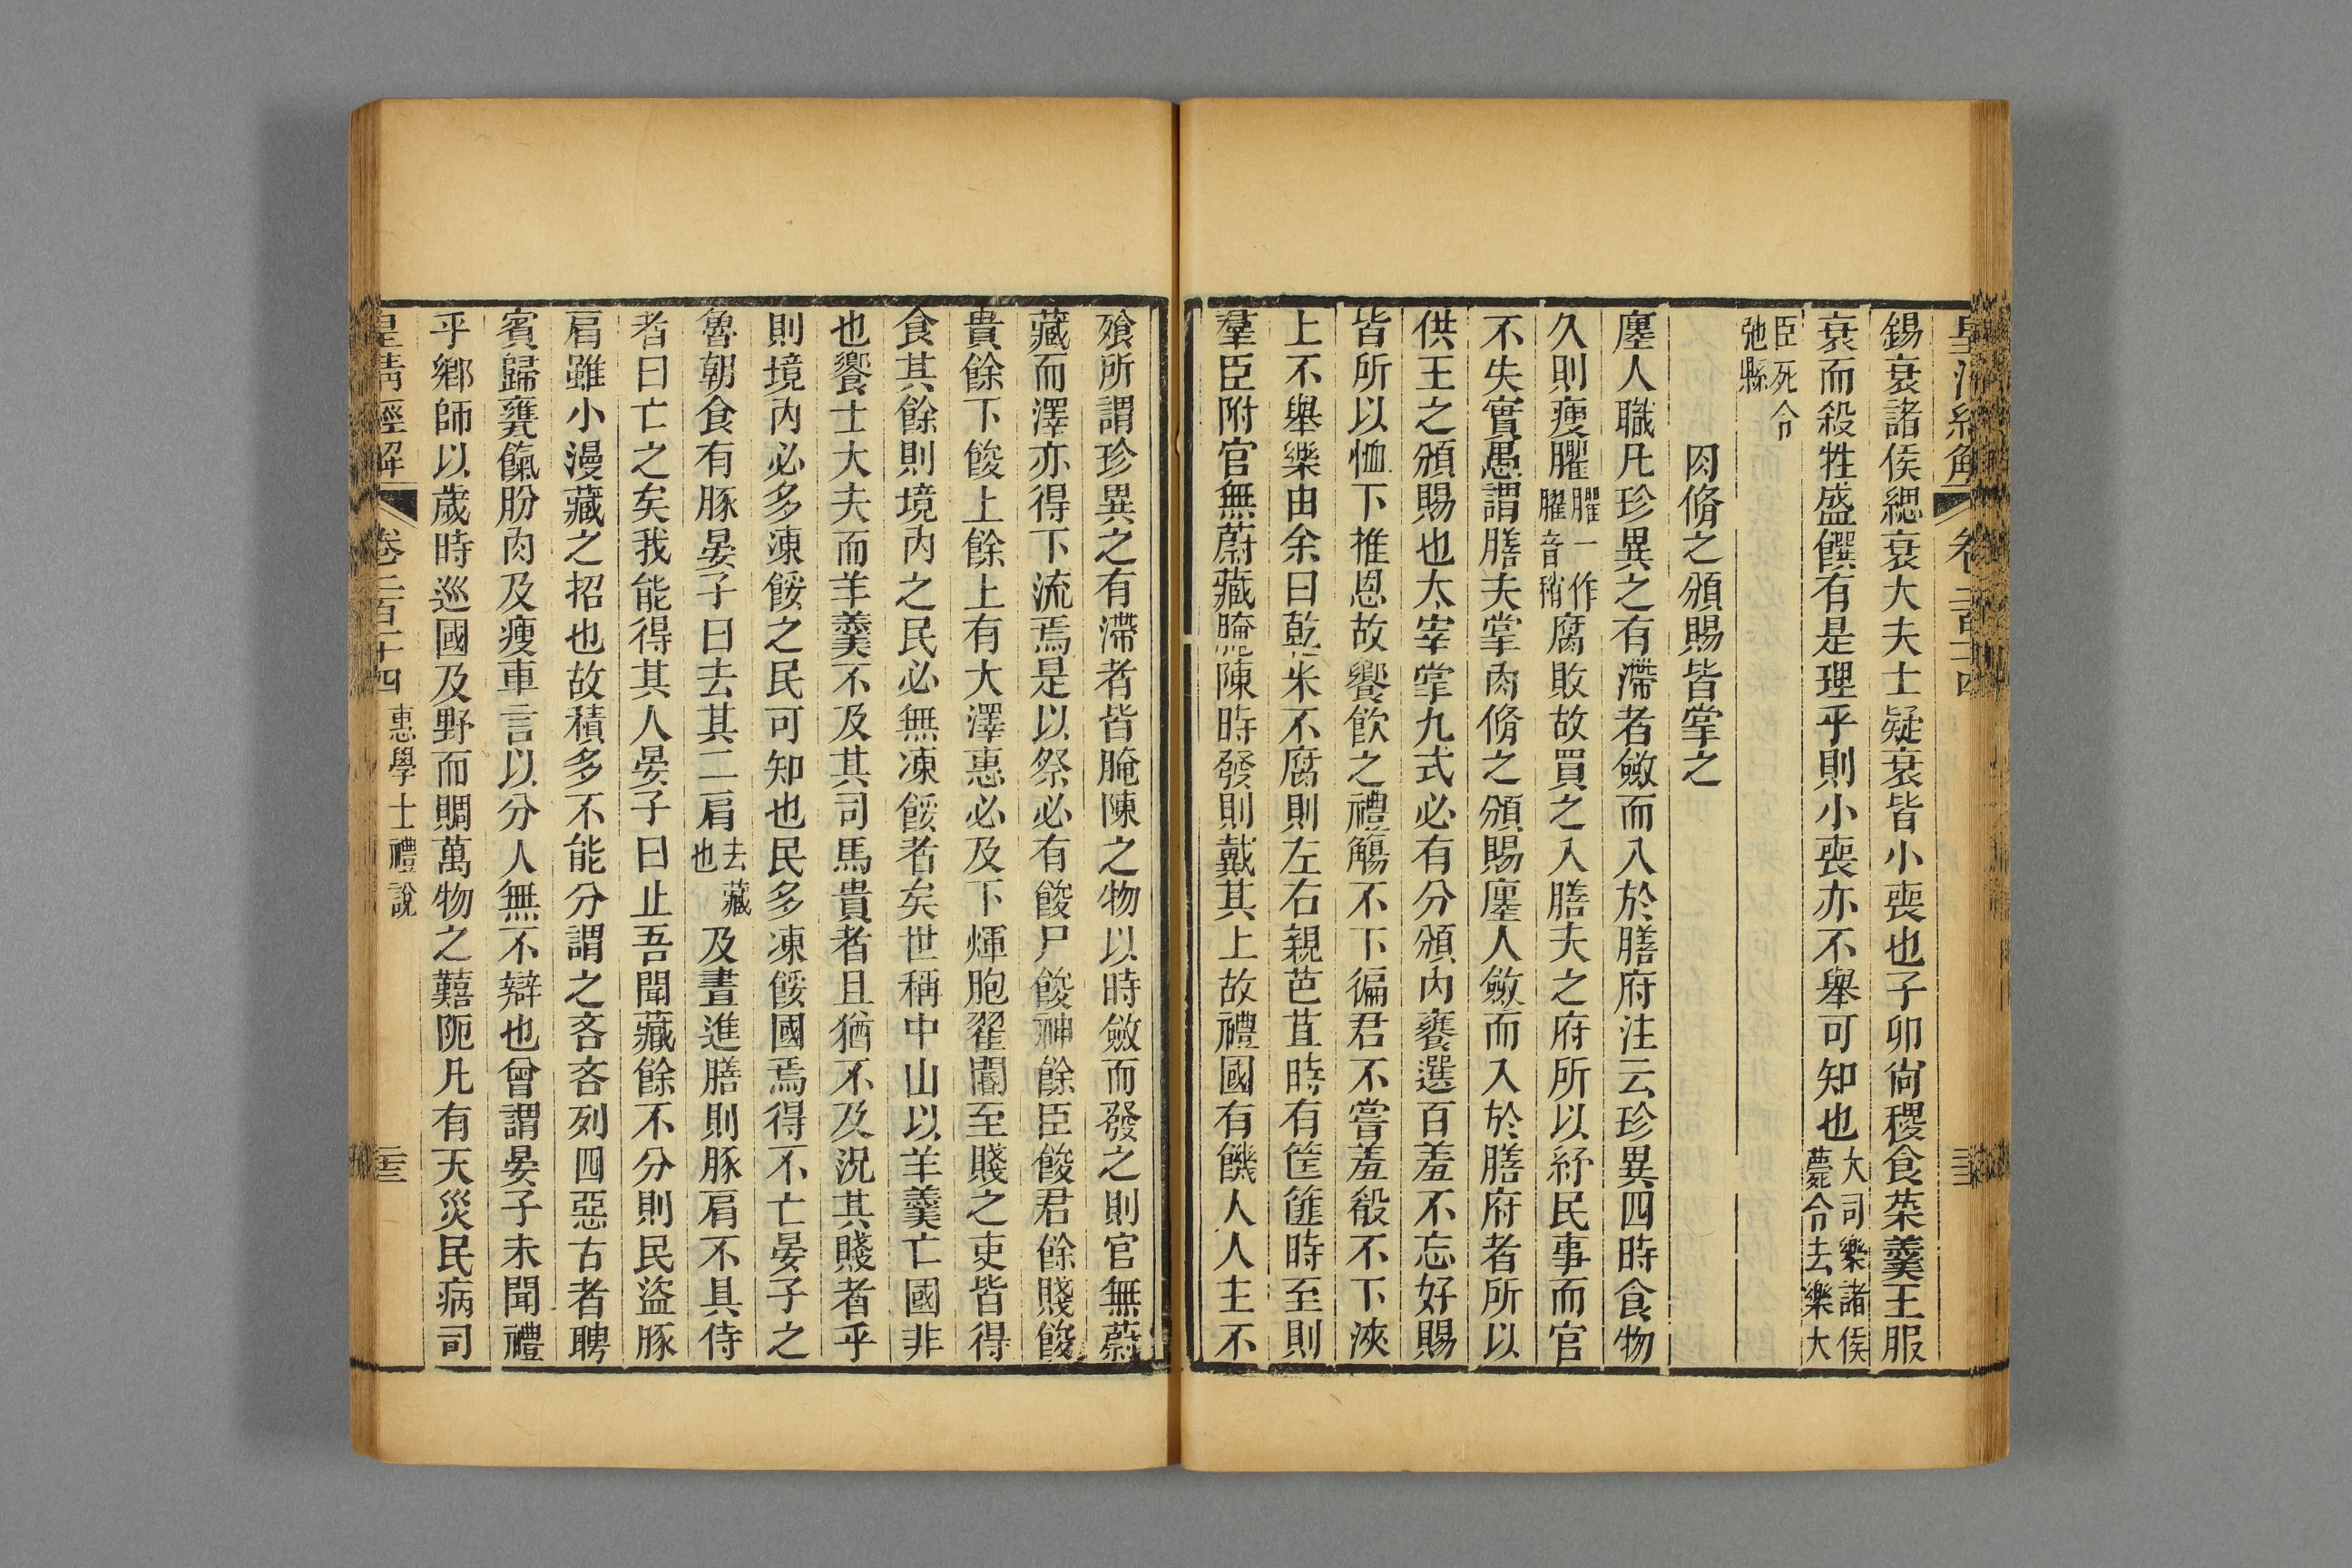 皇清經解 卷二百十四
錫衰諸侯緦衰大夫士疑衰皆小喪也子卯尙稷食菜羹王服
衰而殺牲盛饌有是理乎則小喪亦不舉可知也大司樂諸侯薨令去樂大
臣死令弛縣
肉脩之頒賜皆掌之
廛人職凡珍異之有滯者斂而入於膳府注云珍異四時食物
久則瘦臞臞一作臒音稍腐敗故買之入膳夫之府所以紓民事而官
不失實愚謂膳夫掌肉脩之頒賜廛人斂而入於膳府者所以
供王之頒賜也太宰掌九式必有分頒內饔選百羞不忘好賜
皆所以恤下推恩故饗飮之禮觴不下徧君不嘗羞殽不下浹
上不舉樂由余曰乾米不腐則左右親苞苴時有筐篚時至則
羣臣附官無蔚藏腌陳時發則戴其上故禮國有饑人人主不
飧所謂珍異之有滯者皆腌陳之物以時斂而發之則官無蔚
藏而澤亦得下流焉是以祭必有餕尸餕神餘臣餕君餘賤餕
貴餘下餕上餘上有大澤惠必及下煇胞翟閽至賤之吏皆得
食其餘則境內之民必無凍餒者矣世稱中山以羊羹亡國非
也饗士大夫而羊羹不及其司馬貴者且猶不及況其賤者乎
則境內必多凍餒之民可知也民多凍餒國焉得不亡晏子之
魯朝食有豚晏子曰去其二肩去藏也及晝進膳則豚肩不具侍
者曰亡之矣我能得其人晏子曰止吾聞藏餘不分則民盜豚
肩雖小漫藏之招也故積多不能分謂之吝吝列四惡古者聘
賓歸饔餼肦肉及廋車言以分人無不辯也曾謂晏子未聞禮
乎鄕師以歲時巡國及野而賙萬物之囏阨凡有天災民病司
皇淸經解 卷二百十四 惠學士禮說 三